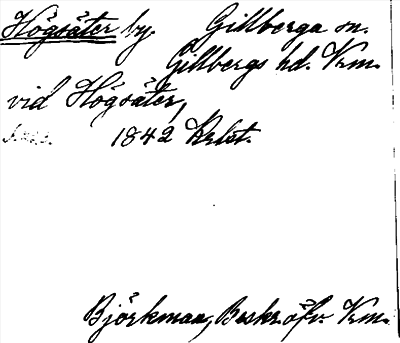 Högsäter by. Gillberga sn.
Gillbergs hd. Vrm.
vid Högsäter,
1842
Björkman, Beskr. öfv. Vrm.